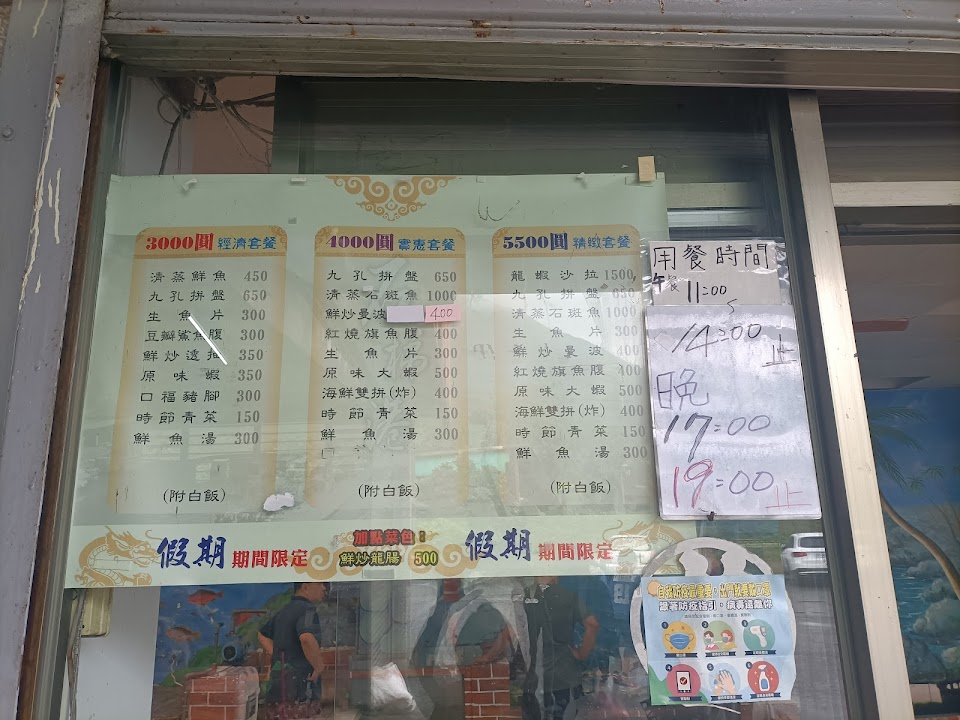 3000圓 經濟套餐
清蒸鮮魚 450
九孔拼盤 650
生魚片 300
豆瓣鯊魚腹 300
鮮炒透抽 350
原味蝦 350
口福豬腳 300
時節青菜 150
鮮魚湯 300
(附白飯)
4000圓 實惠套餐
九孔拼盤 650
清蒸石斑魚 1000
鮮炒曼波 400
紅燒旗魚腹 400
生魚片 300
原味大蝦 500
海鮮雙拼(炸) 400
時節青菜 150
鮮魚湯 300
(附白飯)
5500圓 精緻套餐
龍蝦沙拉 1500
九孔拼盤 650
清蒸石斑魚 1000
生魚片 300
鮮炒曼波 400
紅燒旗魚腹 400
原味大蝦 500
海鮮雙拼(炸) 400
時節青菜 150
鮮魚湯 300
(附白飯)
假期 期間限定
加點菜色:
鮮炒龍腸 500
假期 期間限定
用餐時間
午餐 11:00
~
14:00 止
晚
17:00
19:00 止
自我防疫最重要,出門就要戴口罩
跟著防疫指引,病毒遠離你
1
2
3
4
5
6